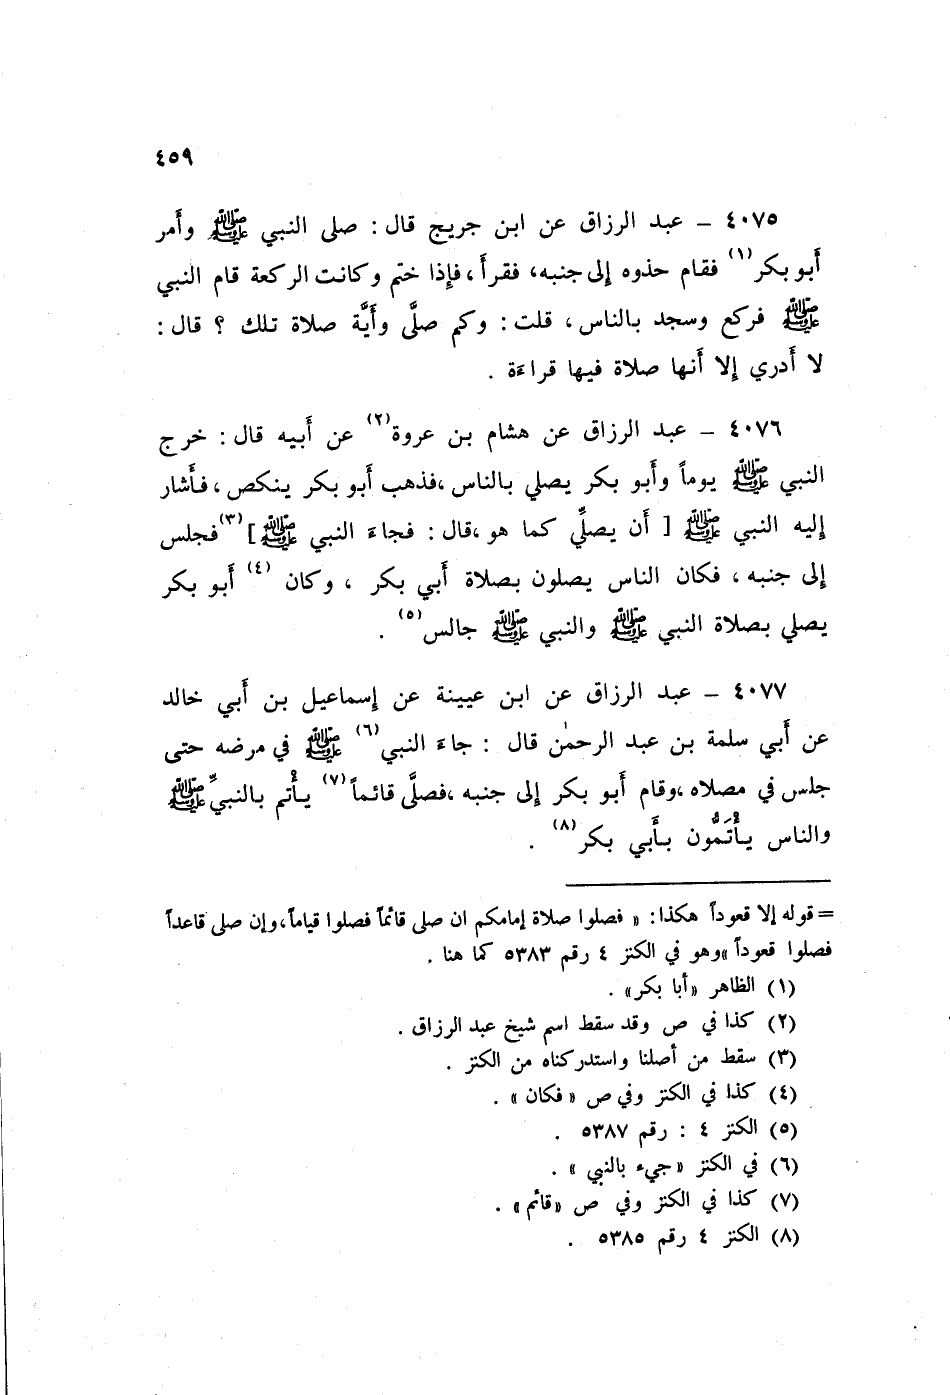 ٤٥٩
٤٠٧٥ – عبد الرزاق عن ابن جريج قال : صلى النبي ﷺ وأمر
أبو بكر(١) فقام حذوه إلى جنبه، فقرأ ، فإذا ختم وكانت الركعة قام النبي
ﷺ فركع وسجد بالناس ، قلت : وكم صلَّى وأيَّة صلاة تلك ؟ قال :
لا أدري إلا أنها صلاة فيها قراءة .
٤٠٧٦ – عبد الرزاق عن هشام بن عروة(٢) عن أبيه قال : خرج
النبي ﷺ يوماً وأبو بكر يصلي بالناس ،فذهب أبو بكر ينكص ، فأشار
إليه النبي ﷺ [ أن يصلِّي كما هو ،قال : فجاء النبي ﷺ ](٣) فجلس
إلى جنبه ، فكان الناس يصلون بصلاة أبي بكر ، وكان (٤) أبو بكر
يصلي بصلاة النبي ﷺ والنبي ﷺ جالس(٥) .
٤٠٧٧ – عبد الرزاق عن ابن عيينة عن إسماعيل بن أبي خالد
عن أبي سلمة بن عبد الرحمٰن قال : جاء النبي(٦) ﷺ في مرضه حتى
جلس في مصلاه ،وقام أبو بكر إلى جنبه ،فصلَّى قائماً(٧) يأْتم بالنبيِّ ﷺ
والناس يأْتَمُّون بأبي بكر(٨) .
= قوله إلا قعوداً هكذا : « فصلوا صلاة إمامكم ان صلى قائماً فصلوا قياماً، وإن صلى قاعداً
فصلوا قعوداً »وهو في الكنز ٤ رقم ٥٣٨٣ كما هنا .
(١) الظاهر «أبا بكر» .
(٢) كذا في ص وقد سقط اسم شيخ عبد الرزاق .
(٣) سقط من أصلنا واستدركناه من الكنز .
(٤) كذا في الكنز وفي ص « فكان » .
(٥) الكنز ٤ : رقم ٥٣٨٧ .
(٦) في الكنز «جيء بالنبي » .
(٧) كذا في الكنز وفي ص «قائم» .
(٨) الكنز ٤ رقم ٥٣٨٥ .